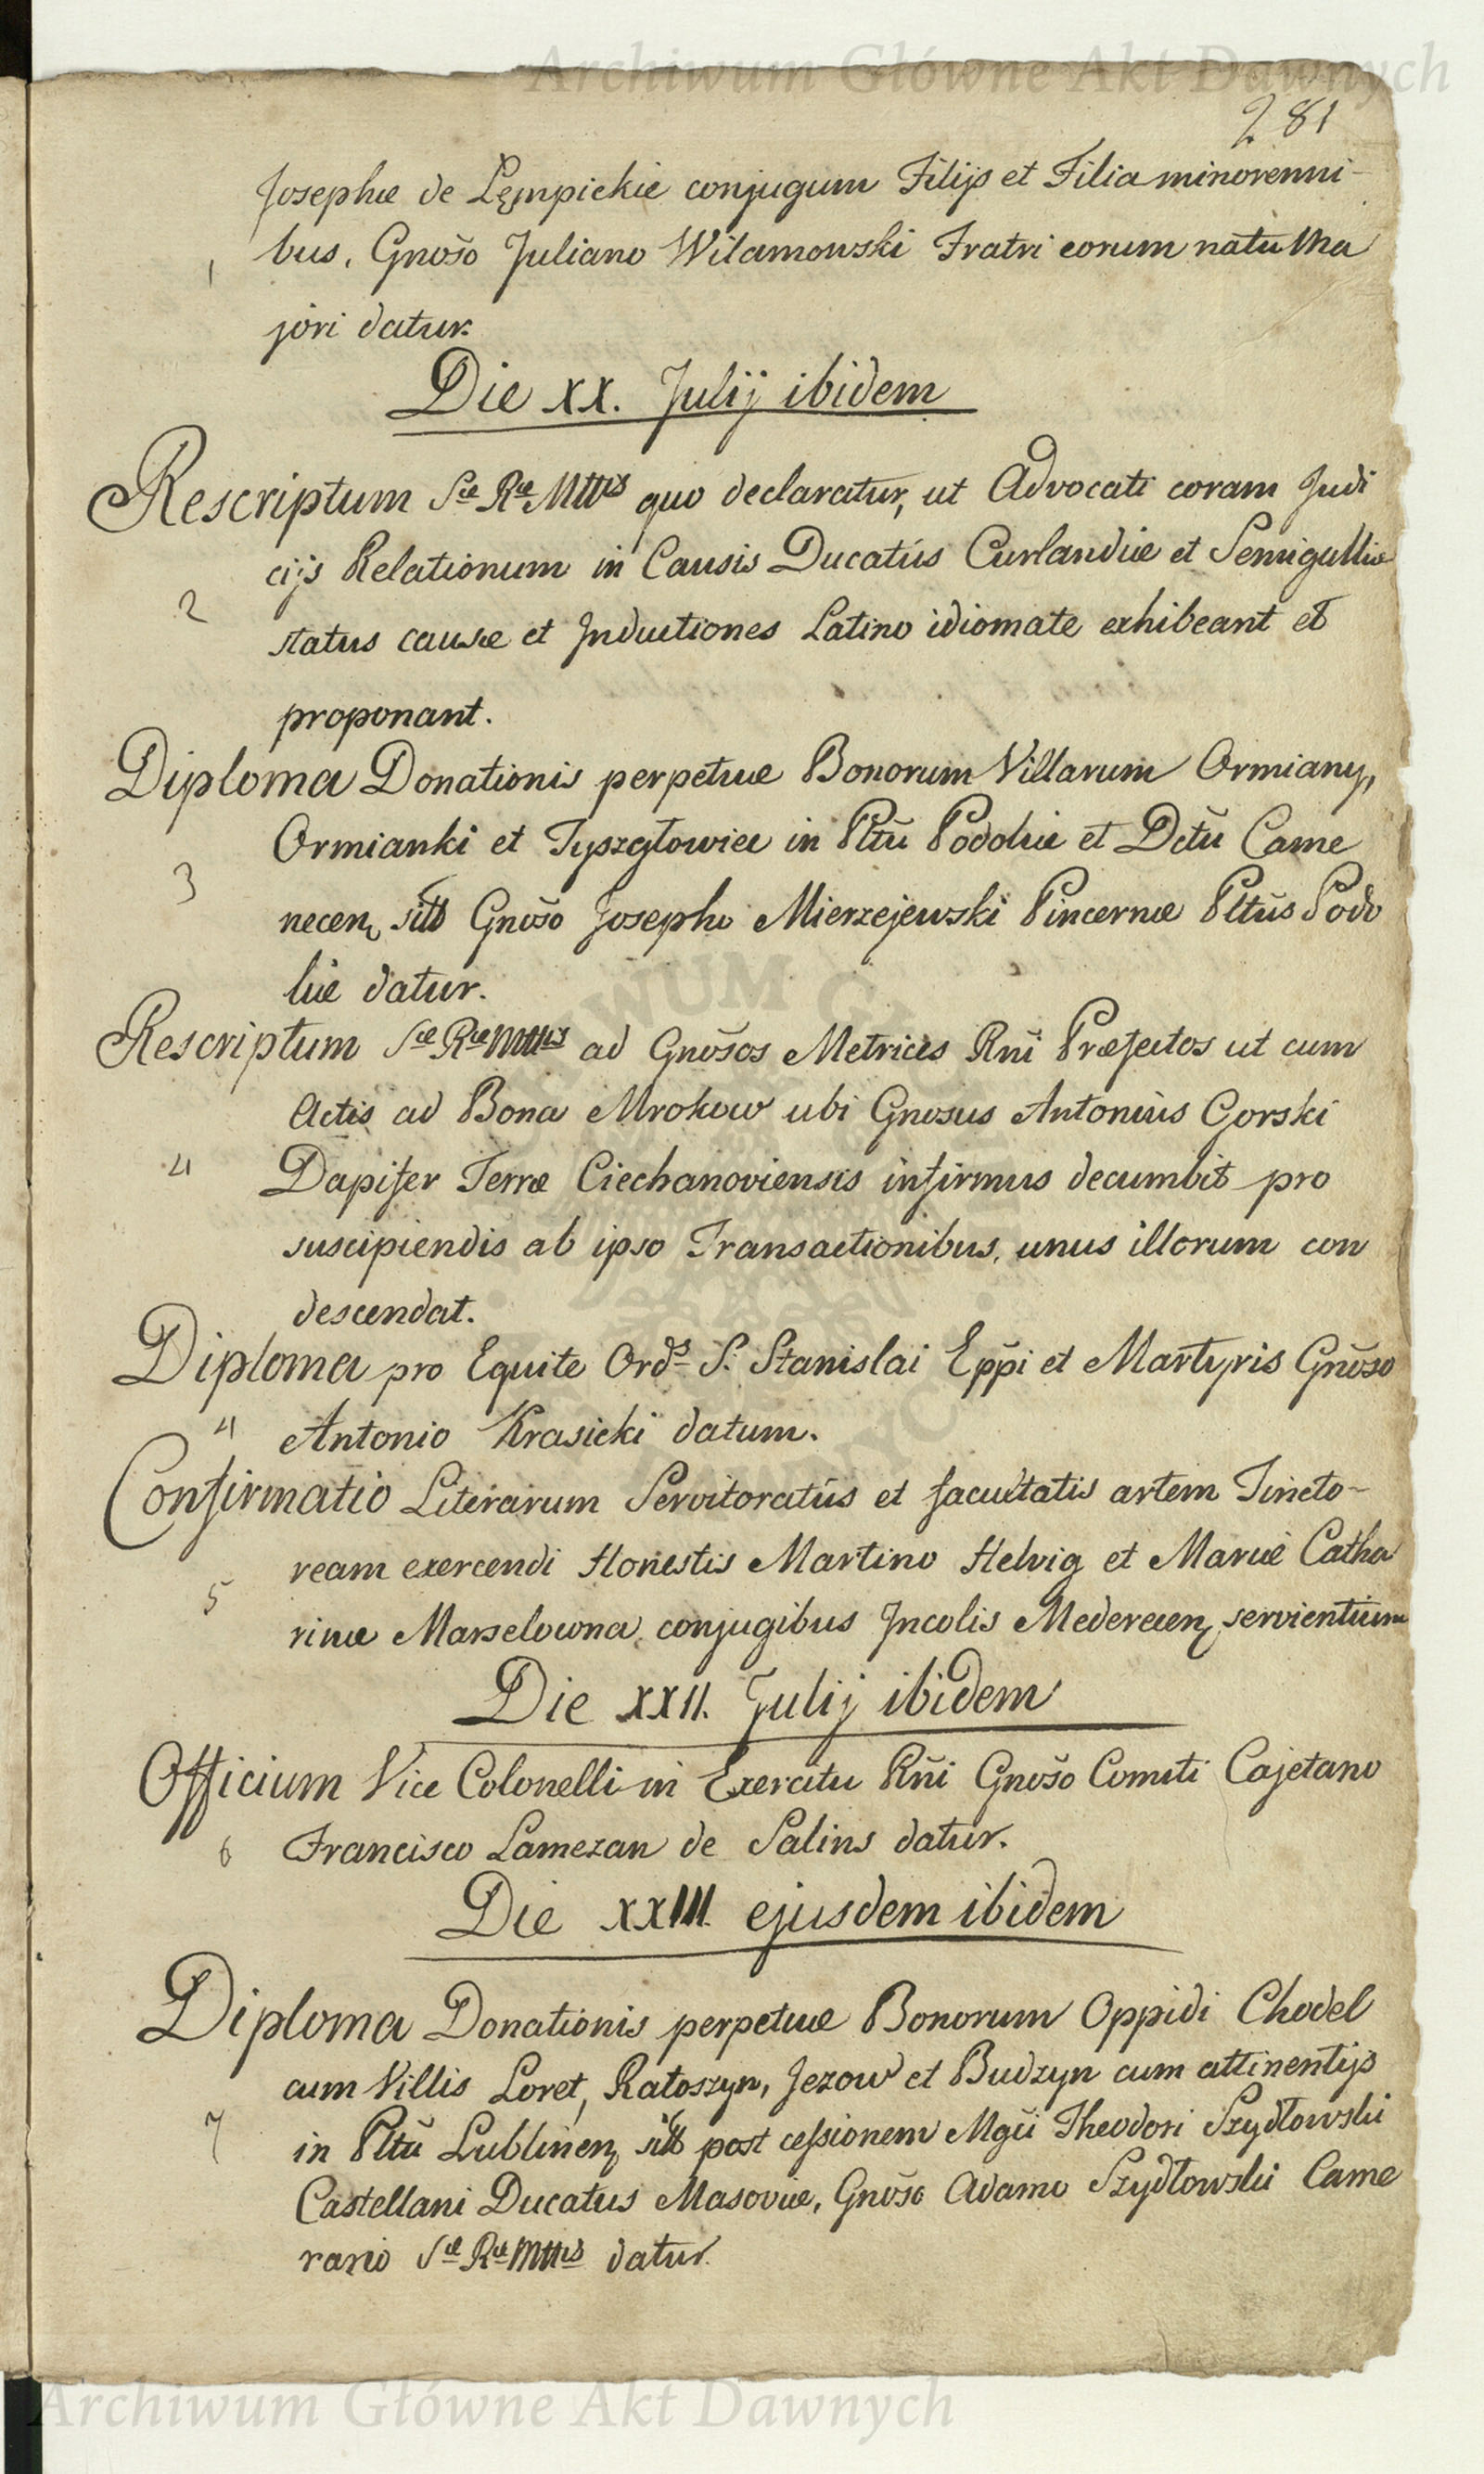 Archiwum Główne Akt Dawnych
281
Josephæ de Lęmpickie conjugum Filijs et Filia minorenni-
1 bus, Gnoso Juliano Wilamowski Fratri eorum natu Ma
jori datur.
Die XX. Julij ibidem
Rescriptum Sæ Ræ Mttis quo declaratur, ut Advocati coram Judi
cijs Relationum in Causis Ducatûs Curlandiæ et Semigalliæ
2 status causæ et Inductiones Latino idiomate exhibeant et
proponant.
Diploma Donationis perpetuæ Bonorum Villarum Ormiany,
Ormianki et Tyszgłowice in Pltũ Podoliæ et Dctũ Came
3 necen, sitt Gnõso Josepho Mierzejewski Pincernæ Pltũs Podo
liæ datur.
Rescriptum Sæ Ræ Mttis ad Gnõsos Metrices Rñi Præfectos ut cum
Actis ad Bona Mrokow ubi Gnosus Antonius Gorski
4 Dapifer Terræ Ciechanoviensis infirmus decumbit pro
suscipiendis ab ipso Transactionibus, unus illorum con
descendat.
Diploma pro Equite Ords S. Stanislai Eppi et Martyris Gnõso
4 Antonio Krasicki datum.
Confirmatio Literarum Servitoratûs et facultatis artem Tincto-
ream exercendi Honestis Martino Helvig et Mariæ Catha
5 rinæ Marselowna conjugibus Incolis Mederecen, servientium
Die XXII. Julij ibidem
Officium Vice Colonelli in Exercitu Rñi Gnõso Comiti Cajetano
6 Francisco Lamezan de Salins datur.
Die XXIII. ejusdem ibidem
Diploma Donationis perpetuæ Bonorum Oppidi Chodel
cum Villis Loret, Ratoszyn, Jezow et Budzyn cum attinentijs
7 in Pltũ Lublinen, sitt post cessionem Mgci Theodori Szydłowski
Castellani Ducatus Masoviæ, Gnõso Adamo Szydłowski Came
rario Sæ Ræ Mttis datur.
Archiwum Główne Akt Dawnych